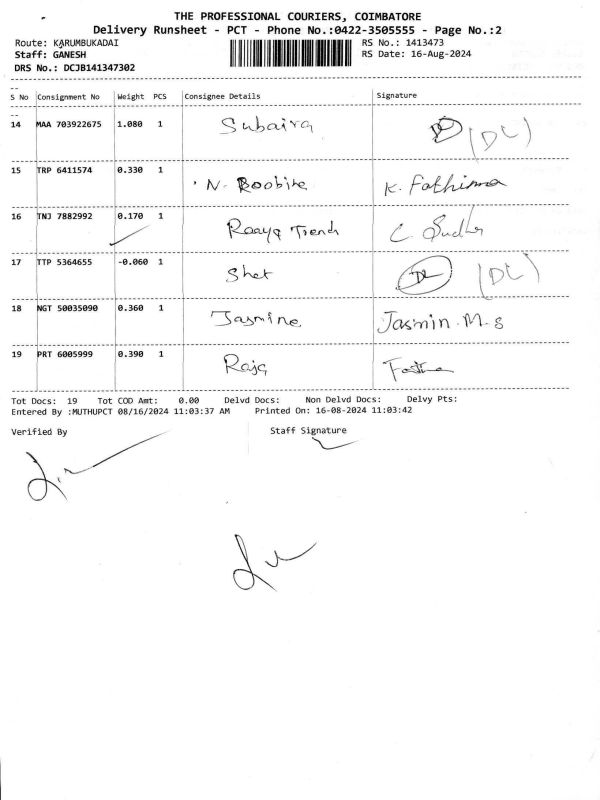 THE PROFESSIONAL COURIERS, COIMBATORE
Delivery Runsheet - PCT - Phone No.:0422-3505555 - Page No.:2
Route: KARUMBUKADAI RS No.: 1413473
Staff: GANESH RS Date: 16-Aug-2024
DRS No.: DCJB141347302
S No Consignment No Weight PCS Consignee Details Signature
14 MAA 703922675 1.080 1 Subaira (DL)
15 TRP 6411574 0.330 1 N. Boobike K. Fathima
16 TNJ 7882992 0.170 1 Raaya Trends C. Sudha
17 TTP 5364655 -0.060 1 DL (DL)
18 NGT 50035090 0.360 1 Jasmine Jasmin.M.S
19 PRT 6005999 0.390 1 Raja
Tot Docs: 19 Tot COD Amt: 0.00 Delvd Docs: Non Delvd Docs: Delvy Pts:
Entered By :MUTHUPCT 08/16/2024 11:03:37 AM Printed On: 16-08-2024 11:03:42
Verified By Staff Signature